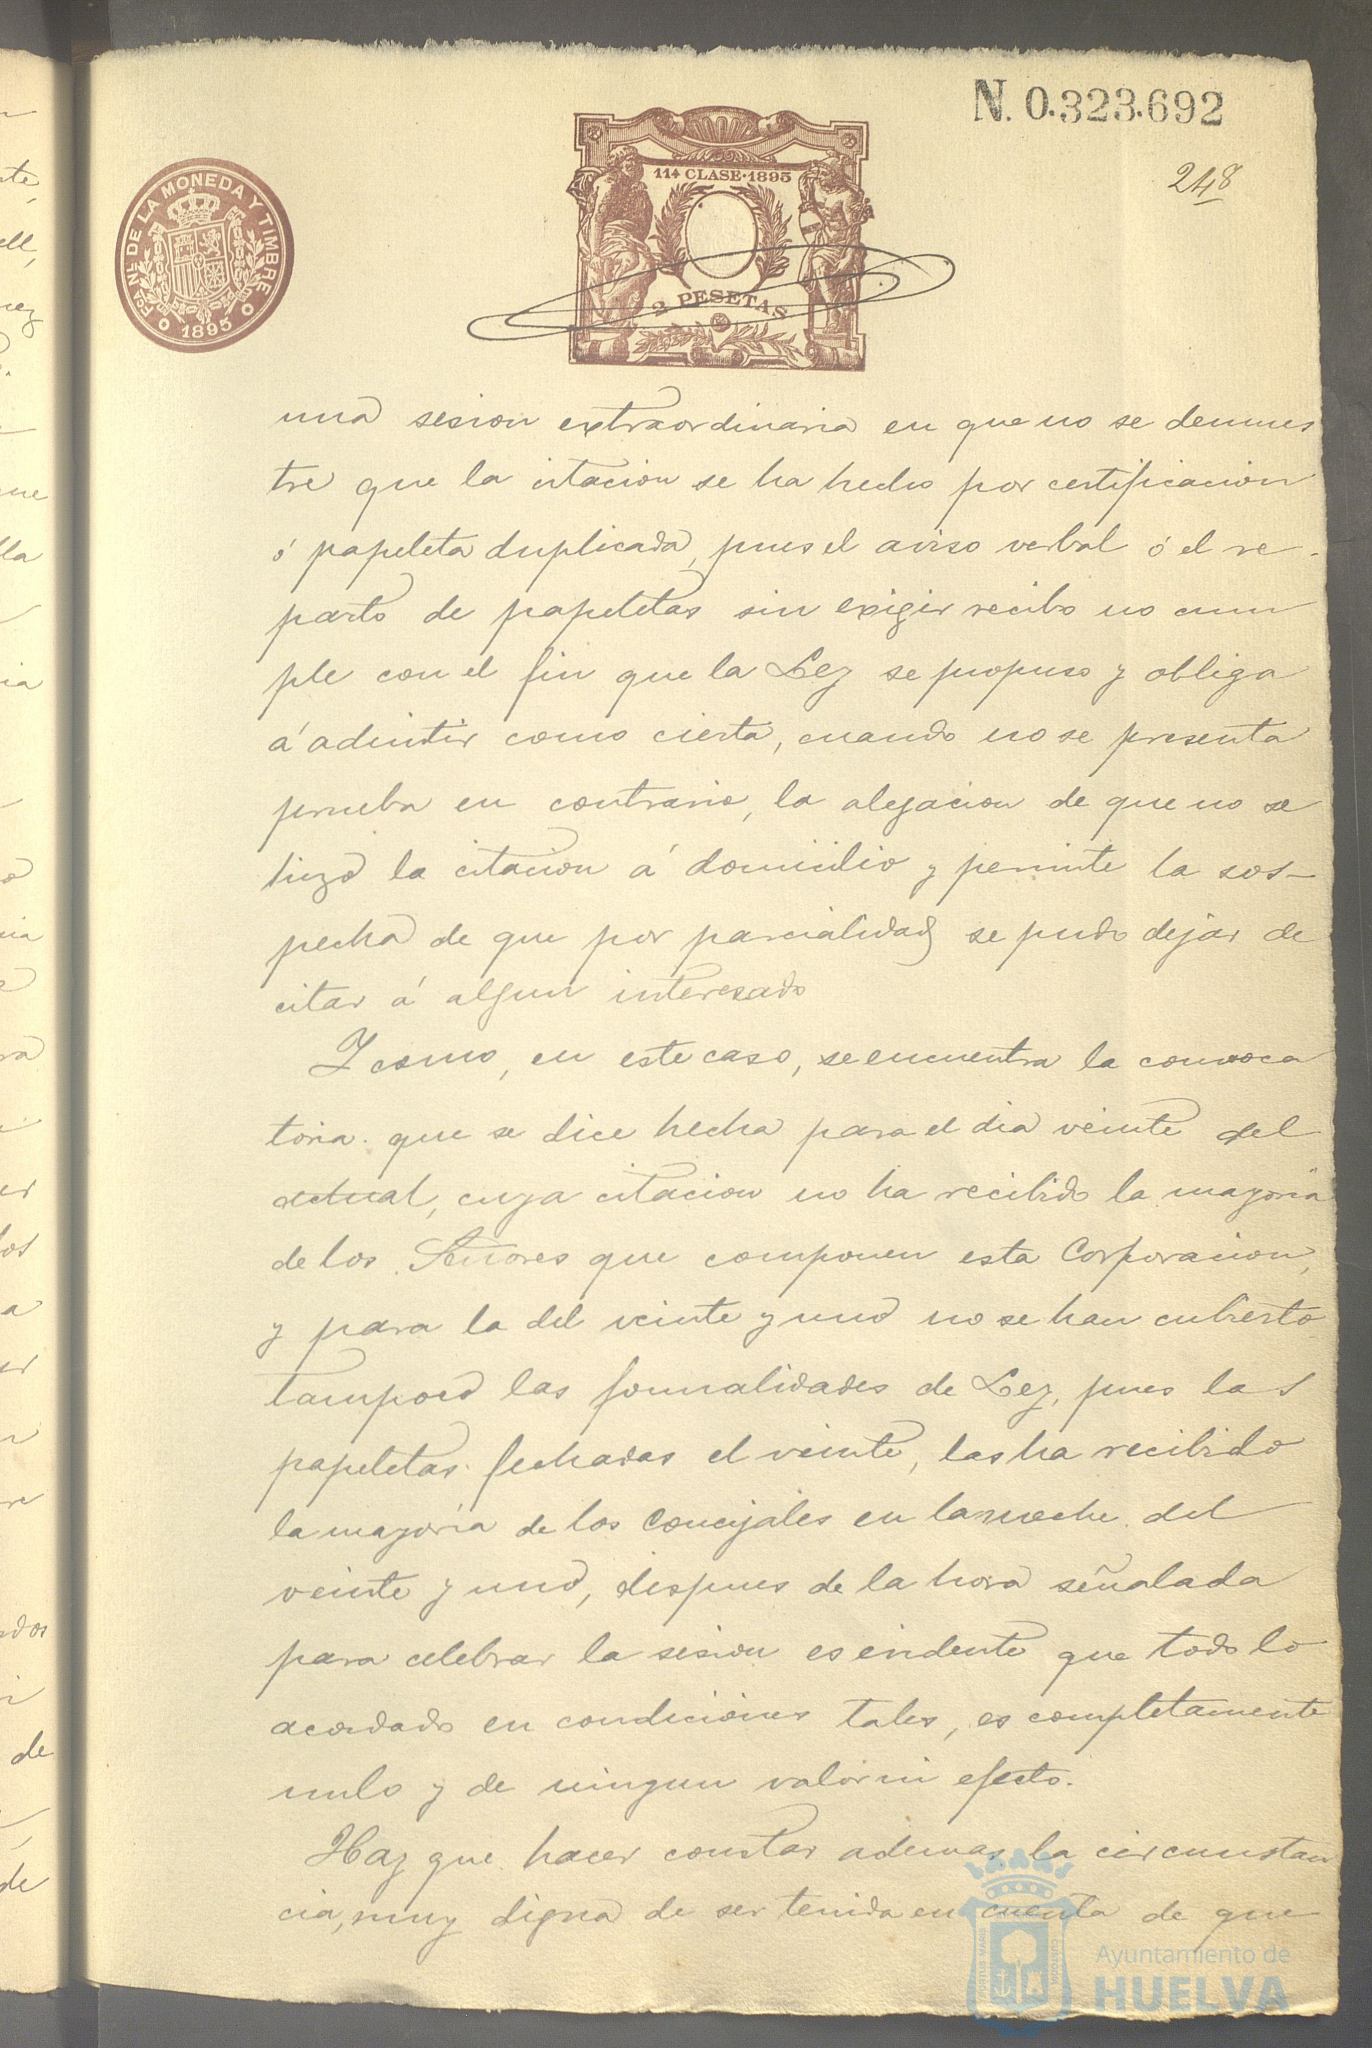 N. 0.323.692
248
FCA. NL. DE LA MONEDA Y TIMBRE
1895
11ª CLASE·1895
2 PESETAS
una sesion extraordinaria en que no se demues
tre que la citacion se ha hecho por certificacion
ó papeleta duplicada, pues el aviso verbal ó el re-
parto de papeletas sin exigir recibo no cum
ple con el fin que la Ley se propuso y obliga
á admitir como cierta, cuando no se presenta
prueba en contrario, la alegacion de que no se
hizo la citacion á domicilio y permite la sos-
pecha de que por parcialidad se pudo dejar de
citar á algun interesado
Y como, en este caso, se encuentra la convoca
toria que se dice hecha para el dia veinte del
actual, cuya citacion no ha recibido la mayoria
de los Señores que componen esta Corporacion,
y para la del veinte y uno no se han cubierto
tampoco las formalidades de Ley, pues las
papeletas fechadas el veinte, las ha recibido
la mayoría de los Concejales en la noche del
veinte y uno, despues de la hora señalada
para celebrar la sesion es evidente que todo lo
acordado en condiciones tales, es completamente
nulo y de ningun valor ni efecto.
Hay que hacer constar ademas la circunstan
cia, muy digna de ser tenida en cuenta de que
Ayuntamiento de
HUELVA